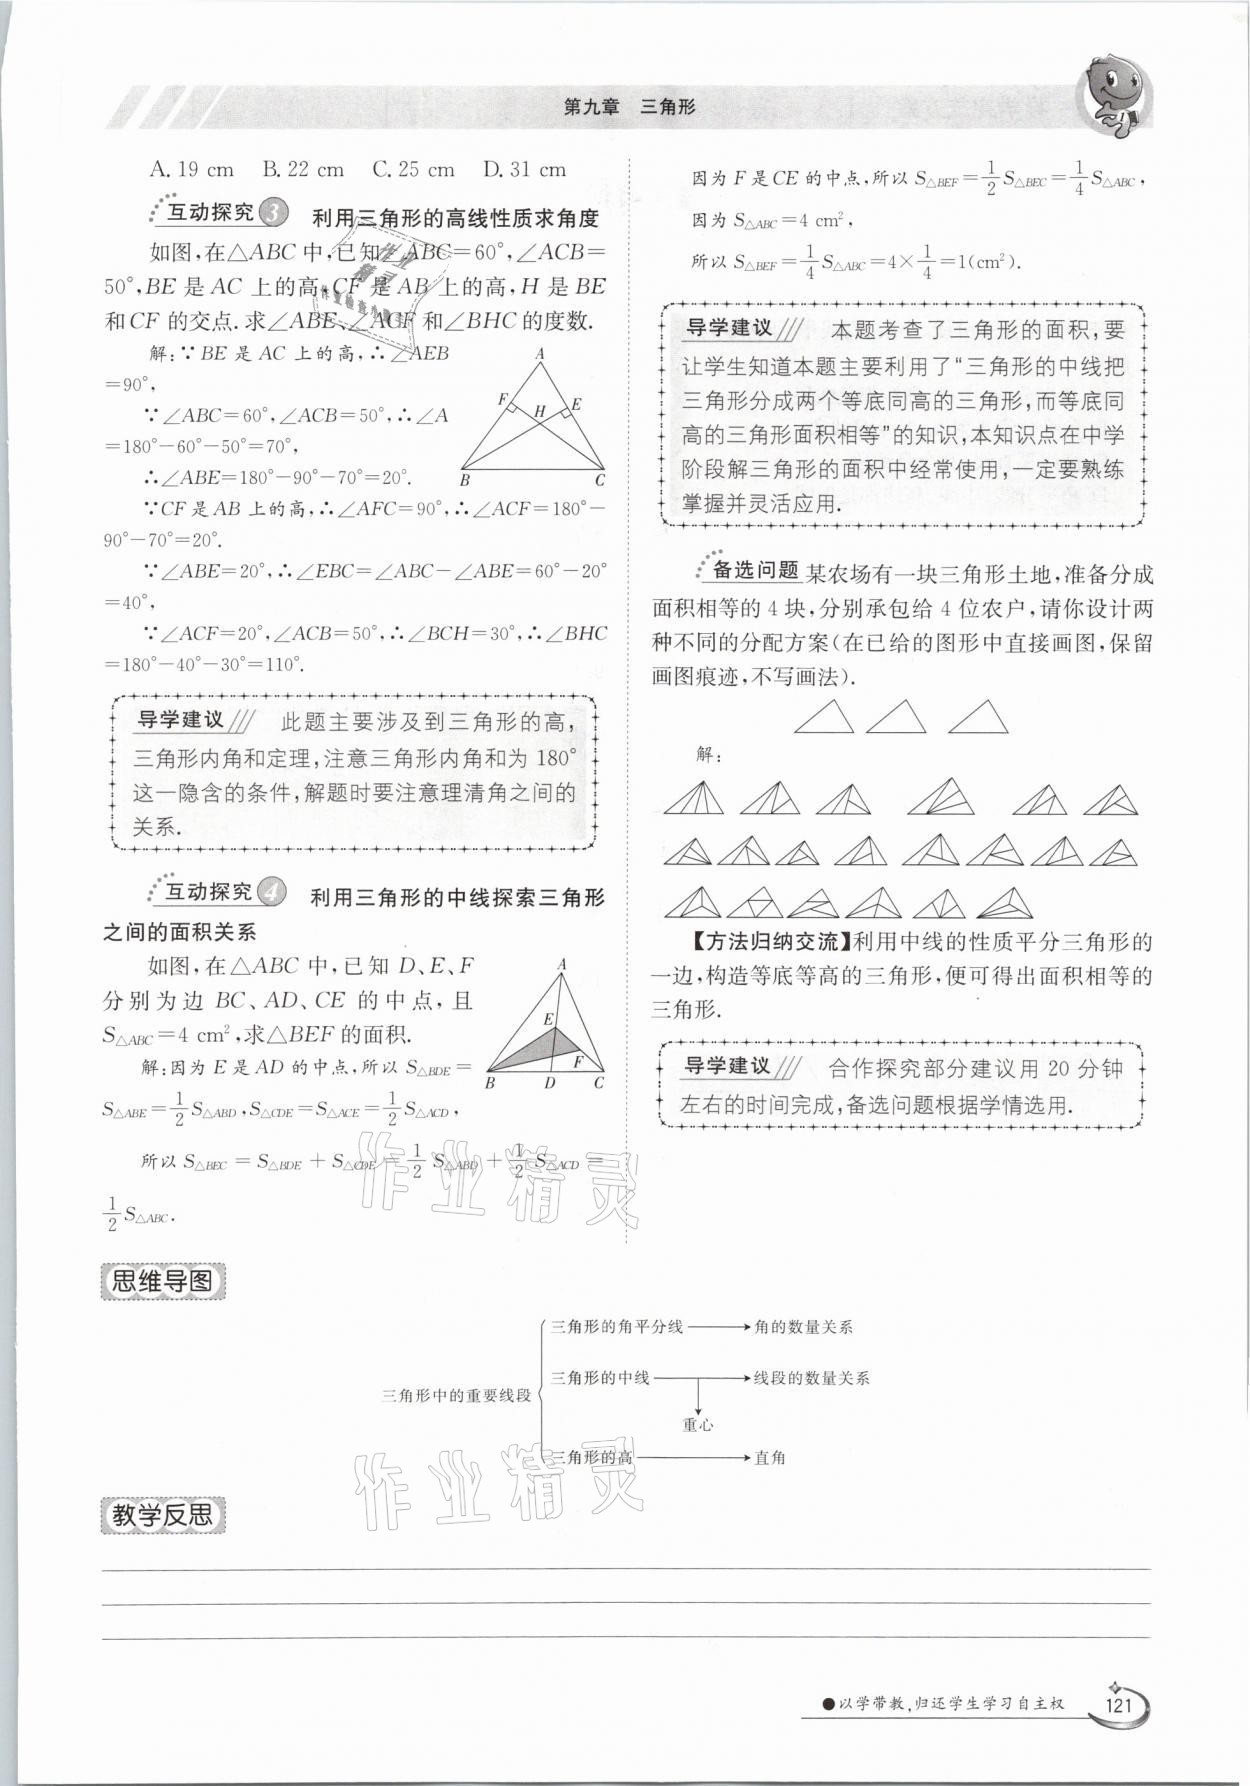 第九章 三角形
A. 19 cm B. 22 cm C. 25 cm D. 31 cm
互动探究 3 利用三角形的高线性质求角度
如图,在△ABC 中,已知∠ABC=60°,∠ACB=
50°,BE 是 AC 上的高,CF 是 AB 上的高,H 是 BE
和 CF 的交点.求∠ABE、∠ACF 和∠BHC 的度数.
解:∵BE 是 AC 上的高,∴∠AEB
=90°,
∵∠ABC=60°,∠ACB=50°,∴∠A
=180°−60°−50°=70°,
∴∠ABE=180°−90°−70°=20°.
∵CF 是 AB 上的高,∴∠AFC=90°,∴∠ACF=180°−
90°−70°=20°.
∵∠ABE=20°,∴∠EBC=∠ABC−∠ABE=60°−20°
=40°,
∵∠ACF=20°,∠ACB=50°,∴∠BCH=30°,∴∠BHC
=180°−40°−30°=110°.
A
F
H
E
B
C
导学建议 此题主要涉及到三角形的高,
三角形内角和定理,注意三角形内角和为 180°
这一隐含的条件,解题时要注意理清角之间的
关系.
互动探究 4 利用三角形的中线探索三角形
之间的面积关系
如图,在△ABC 中,已知 D、E、F
分别为边 BC、AD、CE 的中点,且
S△ABC=4 cm²,求△BEF 的面积.
解:因为 E 是 AD 的中点,所以 S△BDE=
S△ABE=1/2 S△ABD,S△CDE=S△ACE=1/2 S△ACD,
所以 S△BEC=S△BDE+S△CDE=1/2 S△ABD+1/2 S△ACD=
1/2 S△ABC.
A
E
F
B
D
C
因为 F 是 CE 的中点,所以 S△BEF=1/2 S△BEC=1/4 S△ABC,
因为 S△ABC=4 cm²,
所以 S△BEF=1/4 S△ABC=4×1/4=1(cm²).
导学建议 本题考查了三角形的面积,要
让学生知道本题主要利用了“三角形的中线把
三角形分成两个等底同高的三角形,而等底同
高的三角形面积相等”的知识,本知识点在中学
阶段解三角形的面积中经常使用,一定要熟练
掌握并灵活应用.
备选问题 某农场有一块三角形土地,准备分成
面积相等的 4 块,分别承包给 4 位农户,请你设计两
种不同的分配方案(在已给的图形中直接画图,保留
画图痕迹,不写画法).
解:
【方法归纳交流】利用中线的性质平分三角形的
一边,构造等底等高的三角形,便可得出面积相等的
三角形.
导学建议 合作探究部分建议用 20 分钟
左右的时间完成,备选问题根据学情选用.
作业精灵
思维导图
三角形中的重要线段
三角形的角平分线 角的数量关系
三角形的中线 线段的数量关系
重心
三角形的高 直角
作业精灵
教学反思
●以学带教,归还学生学习自主权
121